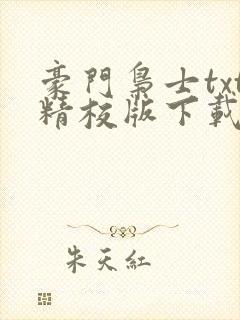 豪門梟士txt
精校版下載
朱天紅